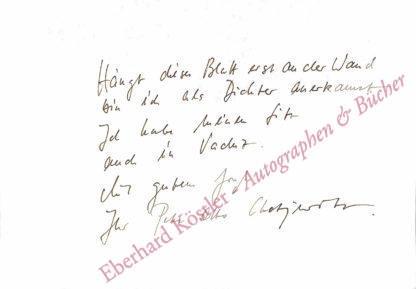 Hängt dieses Blatt erst an der Wand
bin ich als Dichter anerkannt
Ich habe meinen Sitz
auch in Vaduz.
Mit gutem
Ihr Peter Otto Chotjewitz.
Eberhard Köstler - Autographen & Bücher